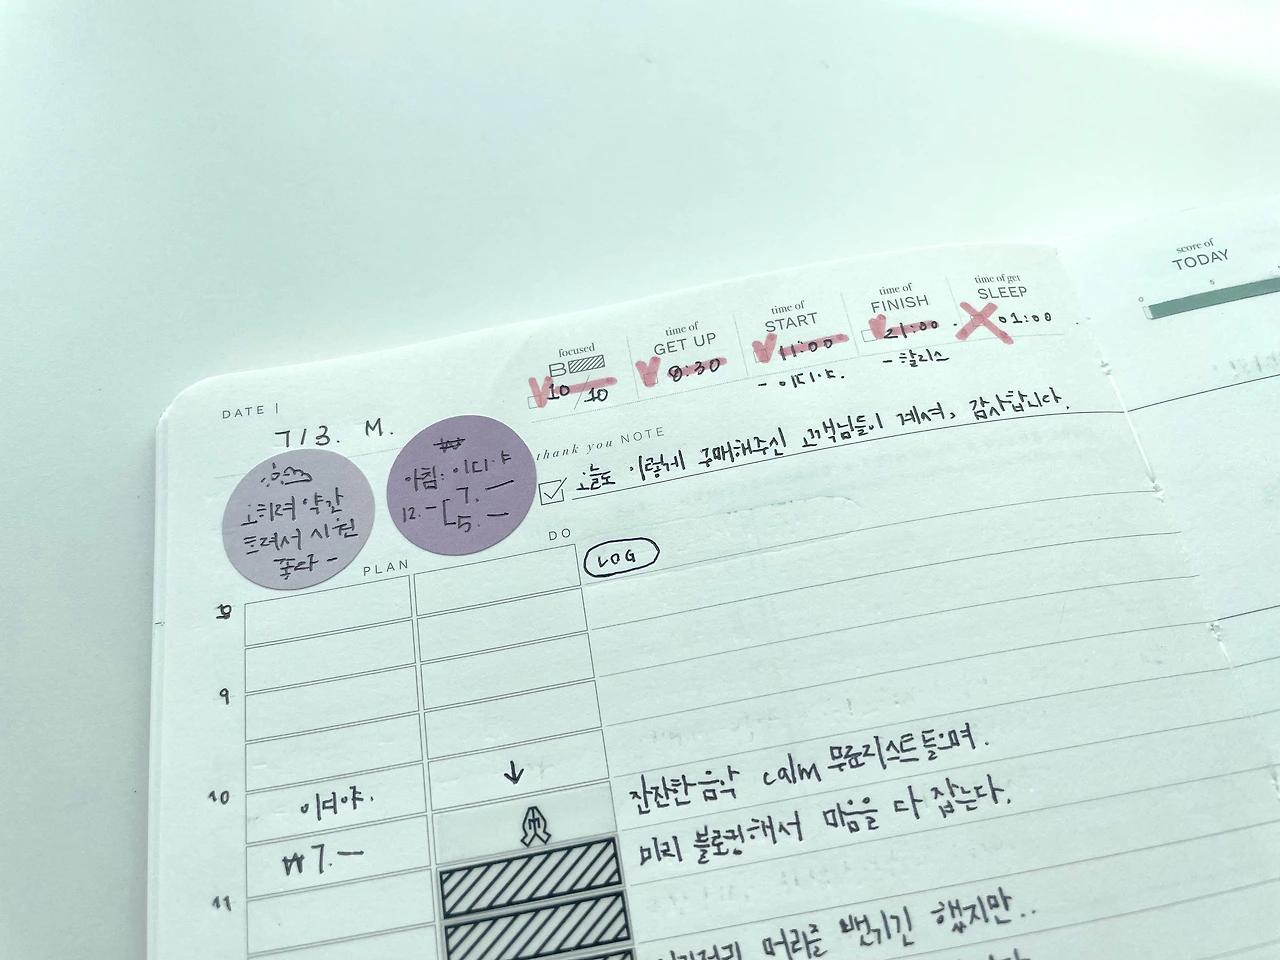 score of
TODAY
0
5
focused
B
10 / 10
time of
GET UP
8:30
time of
START
11:00
- 이디야.
time of
FINISH
21:00
- 할리스
time of get
SLEEP
01:00
DATE |
7/3. M.
오히려 약간
흐려서 시원
좋다 -
₩
아침: 이디야
12. - [ 7. -
5. -
thank you NOTE
오늘도 이렇게 구매해주신 고객님들이 계셔, 감사합니다.
PLAN
DO
LOG
8
9
10
이디야.
₩7. -
11
잔잔한 음악 calm 무료리스트 들으며.
미리 블로킹해서 마음을 다 잡는다.
머리를 뻗기긴 했지만..